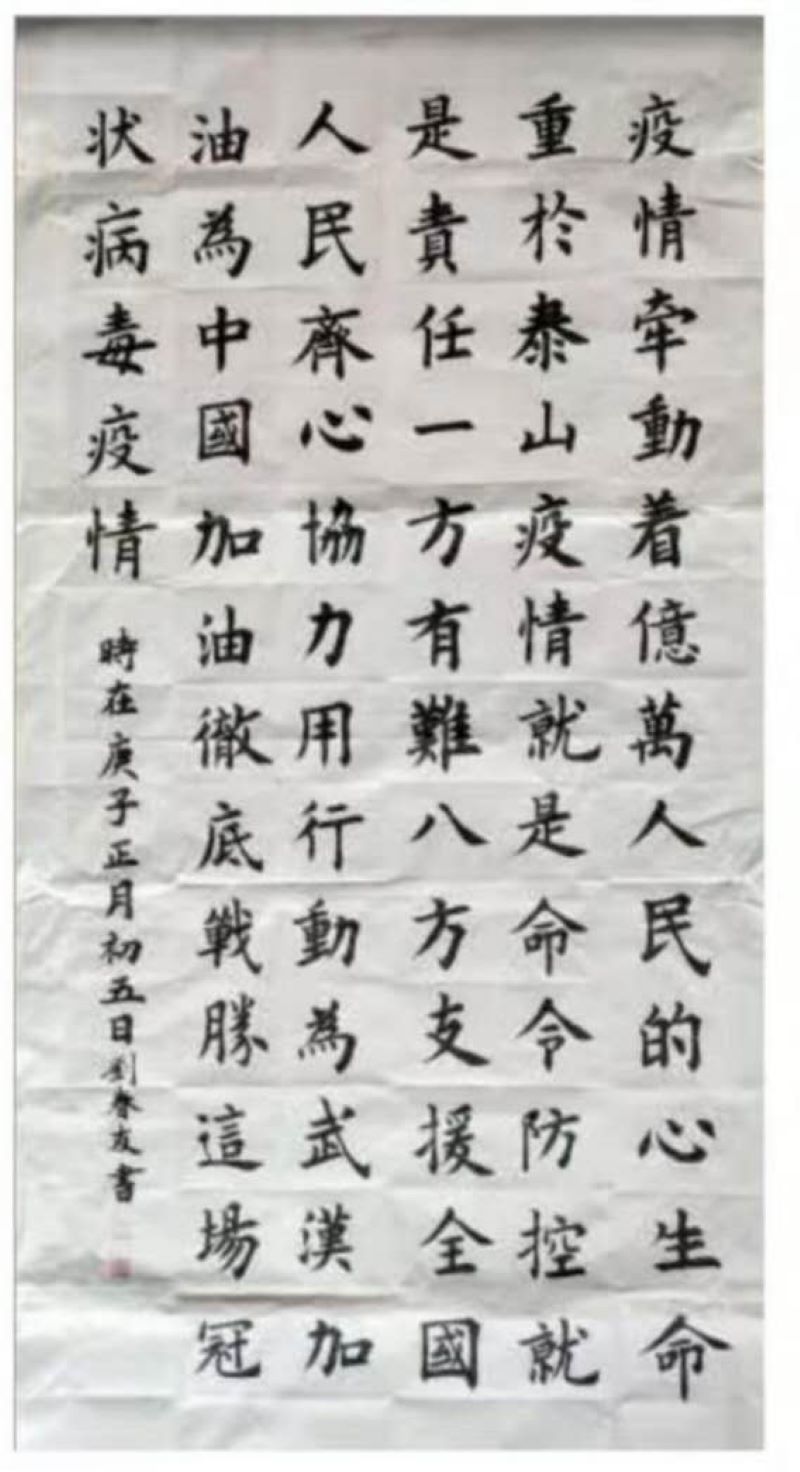 疫情牵動着億萬人民的心生命
重於泰山疫情就是命令防控就
是責任一方有難八方支援全國
人民齊心協力用行動為武漢加
油為中國加油徹底戰勝這場冠
状病毒疫情
時在庚子正月初五日劉春友書